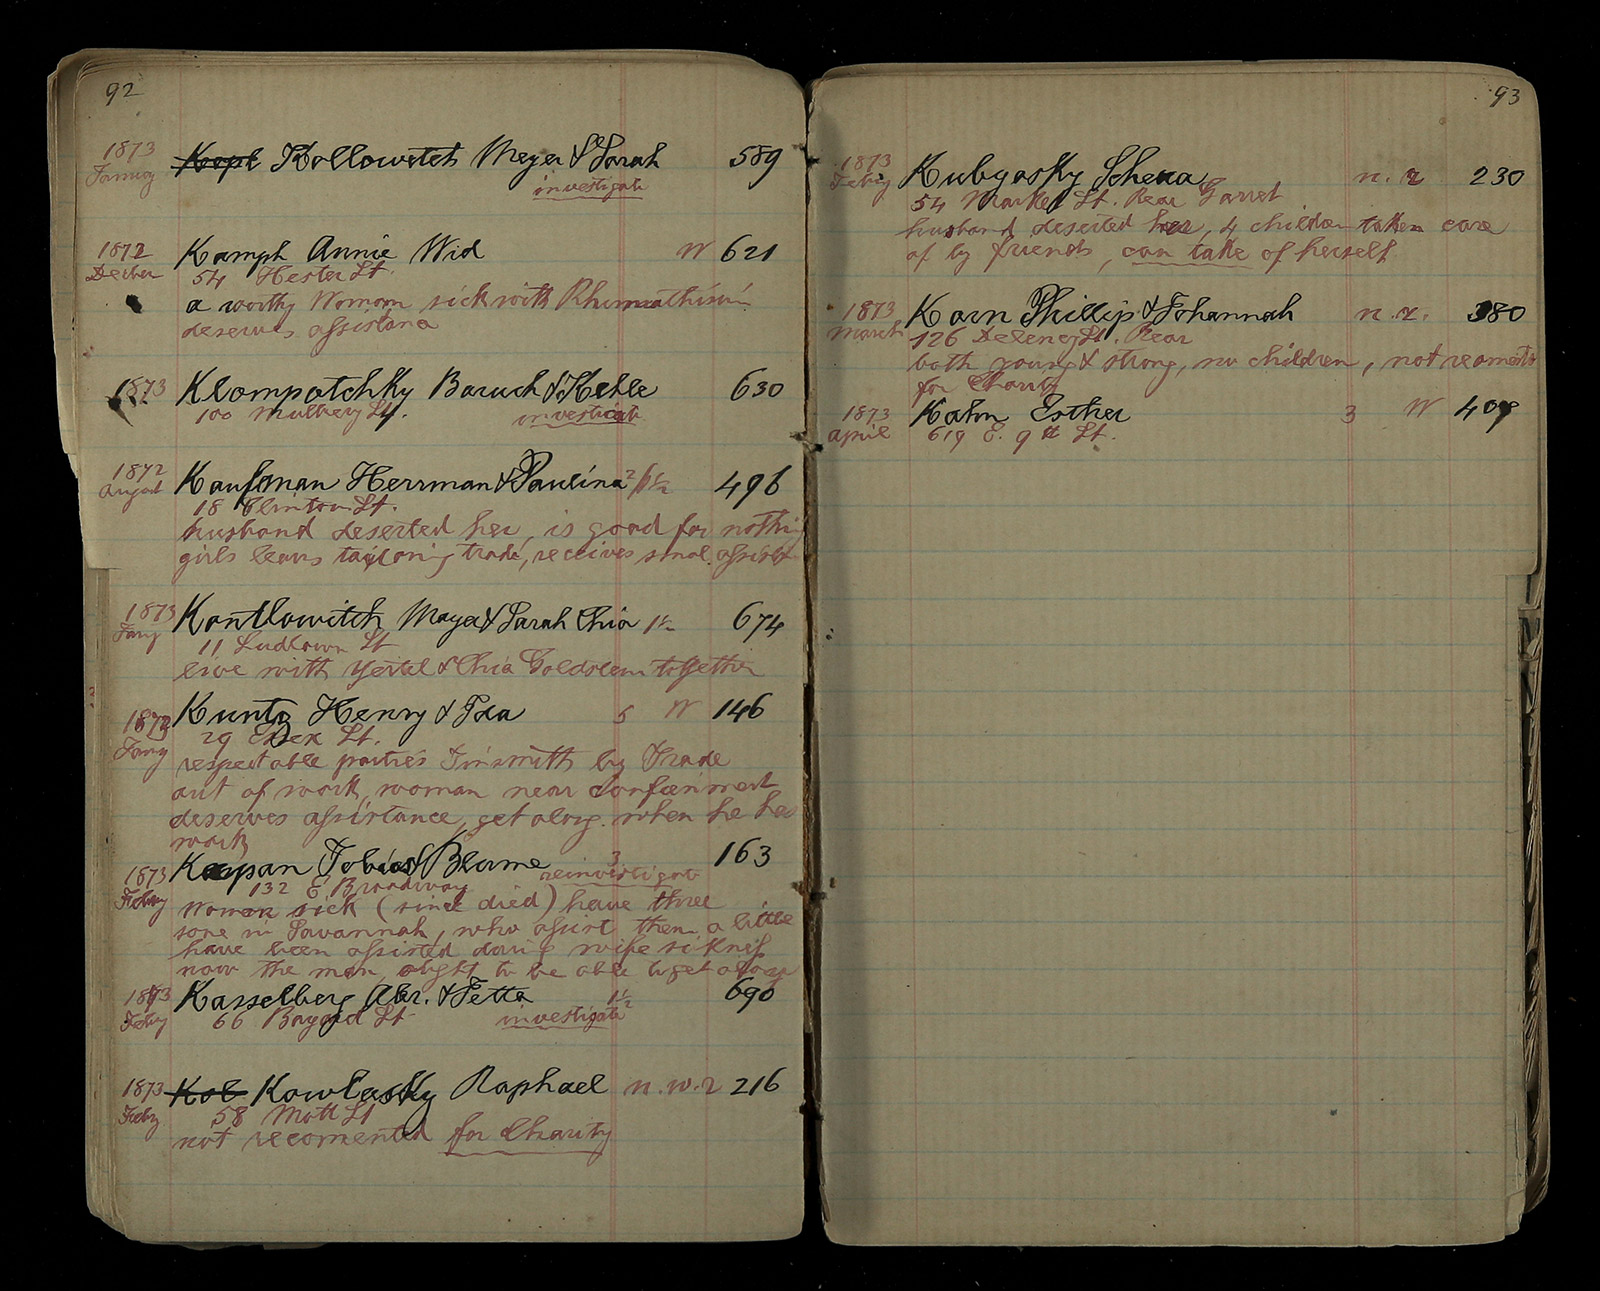 92
1873 Kopl Kollowitch Meyer & Sarah 589
January investigate
1872 Kamph Annie Wid W 621
Decber 54 Hester St.
a worthy Womann, sick with Rhumathism
deserves assistance
1873 Klompatchky Baruch & Hehle 630
100 Mulbery St. investigate
1872 Kaufman Herrman & Paulina 2/6½ 496
August 18 Clinton St.
husband deserted her, is good for nothing
girls learns tayloring trade, receives smal assist
1873 Kantlowitch Mayer & Sarah Chia 1½ 674
Jany 11 Ludlown St
live with Yeitel & Chia Goldstein together
1872 Kuntz Henry & Ida 5 W 146
Jany 29 Essex St.
respectable parties Tinsmith by Trade
out of work, woman near Confeinment
deserves assistance, get along when he has
work
Kaypan Tobias & Blume 3 163
1873 132 E Broadway reinvestigate
Febry Woman sick (since died) have three
sons in Savannah, who assist them a little
have been assisted during wife sikness
now the man ought to be able to get along
1873 Kasselberg Abr. & Jetta 1½ 690
Febry 66 Bayard St investigate
1873 Kol Kowlasky Raphael n. w. r 216
Febry 58 Mott St
not recomented for Charity
93
1873 Kubyasky Schena n. r 230
Febry 54 Market St. Rear Garret
husband deserted her, 4 children taken care
of by friends, can take of herself
1873 Karn Phillip & Johannah n. r. 380
March 126 Delency St. Rear
both young & strong, no children, not recomented
for Charity
1873 Kahn Esther 3 W 409
April 619 E. 9 th St.